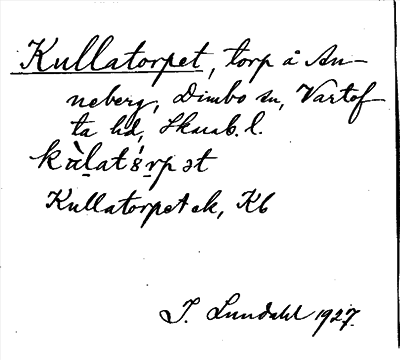 Kullatorpet, torp å An-
neberg, Dimbo sn, Vartof
ta hd, Skarab. l.
kàlatórpət
Kullatorpet ek, Kb
I. Lundahl 1927.